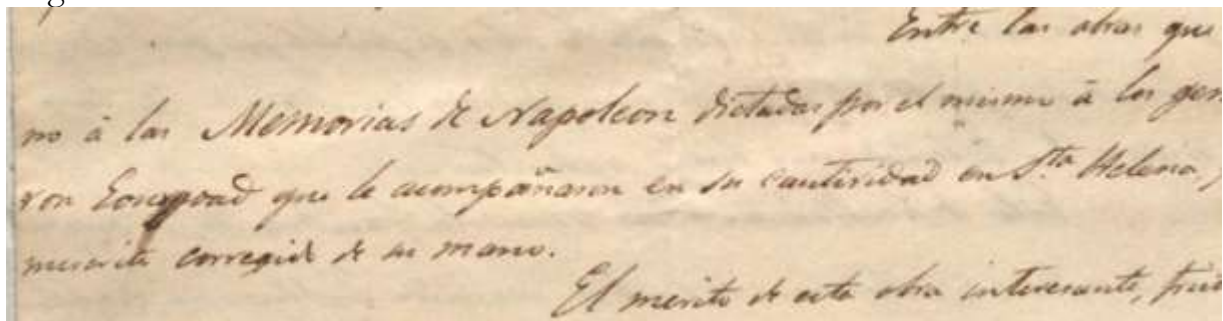 Entre las obras que
no à las Memorias de Napoleon dictadas por el mismo à los gen
ron que le acompañaron en su cautividad en Sta Helena,
corregid de su mano.
El merito de esta obra interesante,